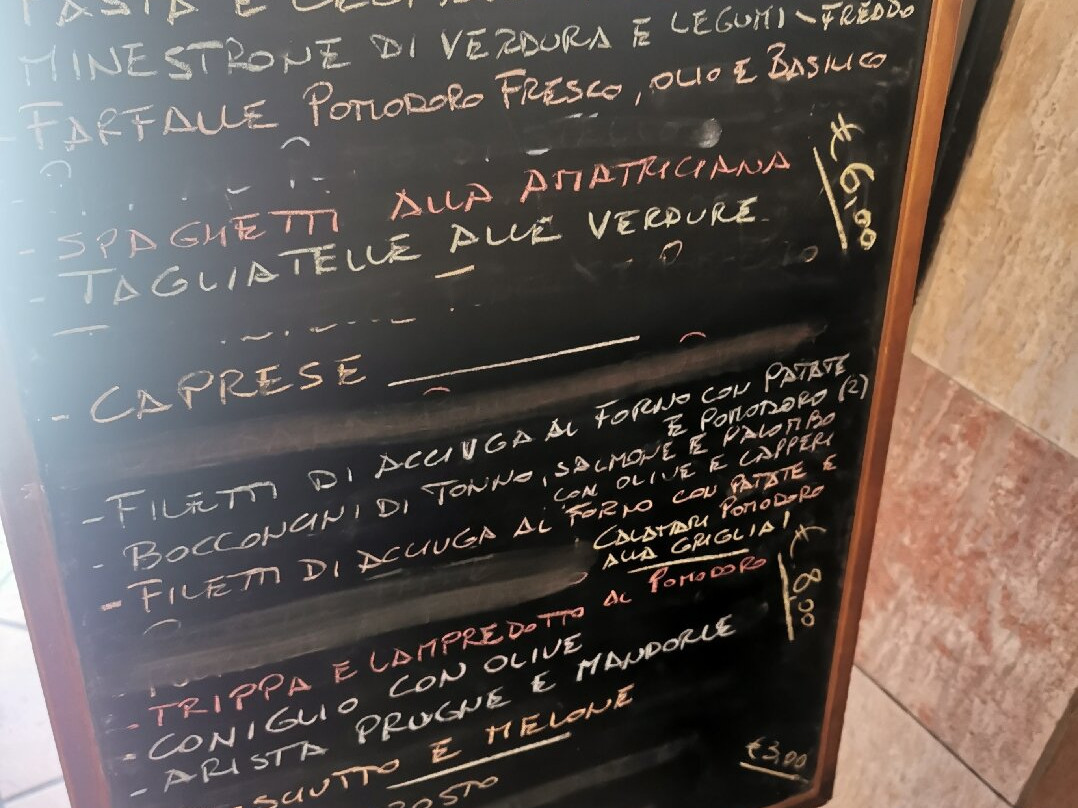 PASTA E
MINESTRONE DI VERDURA E LEGUMI ~ FREDDO
- FARFALLE POMODORO FRESCO, OLIO E BASILICO
- SPAGHETTI ALLA AMATRICIANA
€ 6,00
- TAGLIATELLE ALLE VERDURE
- CAPRESE
- FILETTI DI ACCIUGA AL FORNO CON PATATE
E POMODORO (2)
- BOCCONCINI DI TONNO, SALMONE E PALOMBO
CON OLIVE E CAPPERI
- FILETTI DI ACCIUGA AL FORNO CON PATATE E
POMODORO
CALAMARI
ALLA GRIGLIA!
€ 8,00
- TRIPPA E LAMPREDOTTO AL POMODORO
- CONIGLIO CON OLIVE
- ARISTA PRUGNE E MANDORLE
SCIUTTO E MELONE
€3,00
OSTO